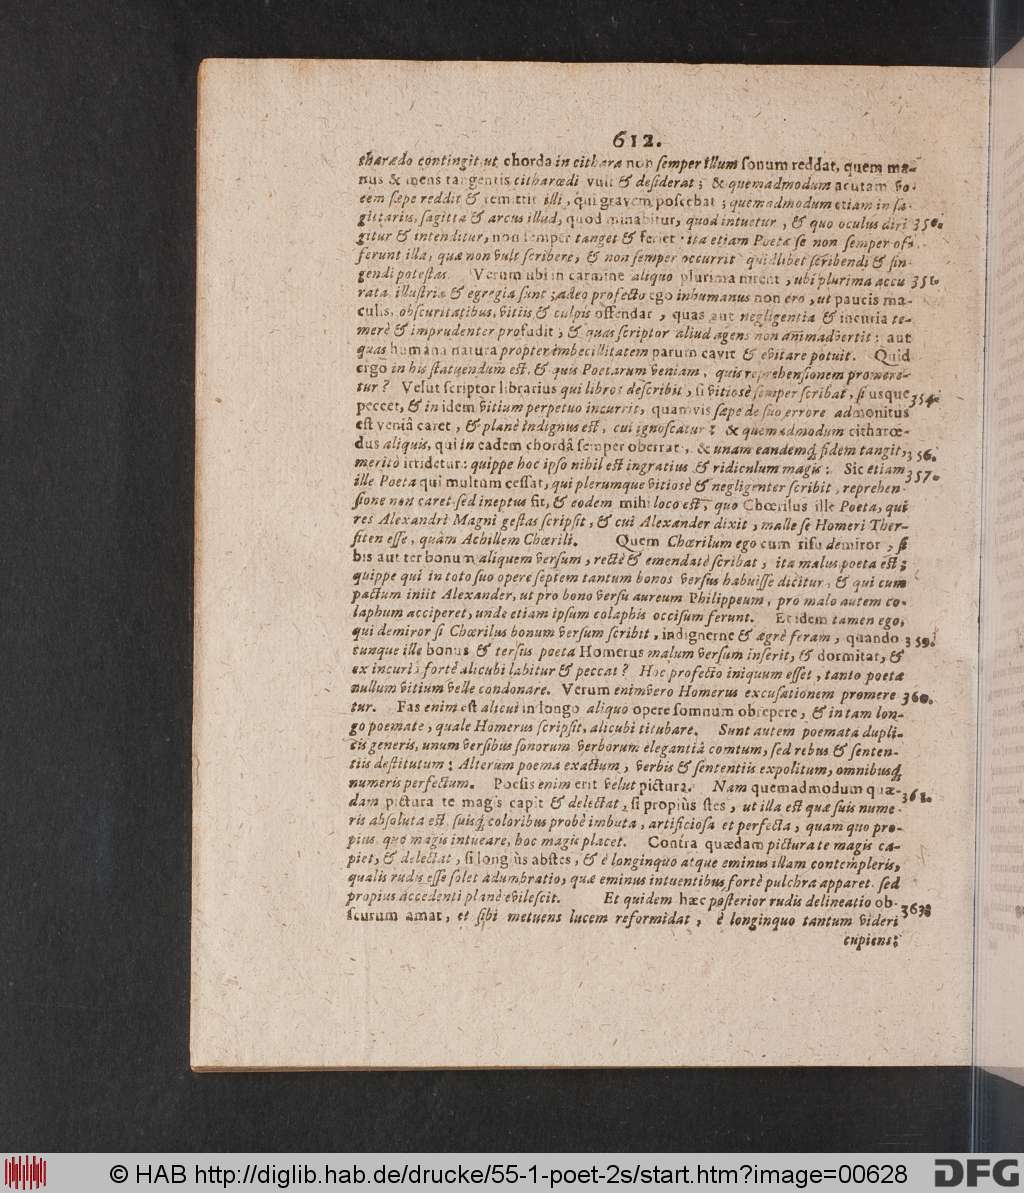 612.
tharædo contingit ut chorda in cithara non semper illum sonum reddat, quem ma-
nus & mens tangentis citharœdi vult & desiderat; & quemadmodum acutam vo-
cem sæpe reddit & remittit illi, qui gravem poscebat; quemadmodum etiam in sa-
gittarius, sagitta & arcus illud, quod minabitur, quod intuetur, & quo oculus diri 350.
gitur & intenditur, non semper tanget & feriet: ita etiam Poetæ se non semper of-
ferunt illa, quæ non vult scribere, & non semper occurrit quidlibet scribendi & fin-
gendi potestas. Verum ubi in carmine aliquo plurima nitent, ubi plurima accu 351.
rata, illustria & egregia sunt; adeo profecto ego inhumanus non ero, ut paucis ma-
culis, obscuritatibus, vitiis & culpis offendar, quas aut negligentia & incuria te-
merè & imprudenter profudit; & quas scriptor aliud agens non animadvertit: aut
quas humana natura propter imbecillitatem parum cavit & evitare potuit. Quid
ergo in his statuendum est, & quis Poetarum veniam, quis reprehensionem promere-
tur? Velut scriptor librarius qui libros describit, si vitiosè semper scribat, si usque 354.
peccet, & in idem vitium perpetuo incurrit, quamvis sæpe de suo errore admonitus
est veniâ caret, & planè indignus est, cui ignoscatur: & quemadmodum citharœ-
dus aliquis, qui in eadem chordâ semper oberrat, & unam eandemq́ fidem tangit, 356.
meritò irridetur: quippe hoc ipso nihil est ingratius & ridiculum magis: Sic etiam 357.
ille Poeta qui multum cessat, qui plerumque vitiosè & negligenter scribit, reprehen-
sione non caret sed ineptus fit, & eodem mihi loco est, quo Chœrilus ille Poeta, qui
res Alexandri Magni gestas scripsit, & cui Alexander dixit, malle se Homeri Ther-
siten esse, quàm Achillem Chœrili. Quem Chœrilum ego cum risu demiror, si
bis aut ter bonum aliquem versum, rectè & emendatè scribat, ita malus poeta est;
quippe qui in toto suo opere septem tantum bonos versus habuisse dicitur, & qui cum
pactum iniit Alexander, ut pro bono versu aureum Philippeum, pro malo autem co-
laphum acciperet, unde etiam ipsum colaphis occisum ferunt. Et idem tamen ego,
qui demiror si Chœrilus bonum versum scribit, indignerne & ægrè feram, quando 359.
cunque ille bonus & tersus poeta Homerus malum versum inserit, & dormitat, &
ex incuria fortè alicubi labitur & peccat? Hoc profecto iniquum esset, tanto poetæ
nullum vitium velle condonare. Verum enimvero Homerus excusationem promere 360.
tur. Fas enim est alicui in longo aliquo opere somnum obrepere, & in tam lon-
go poemate, quale Homerus scripsit, alicubi titubare. Sunt autem poemata dupli-
cis generis, unum versibus sonorum verborum elegantiâ comtum, sed rebus & senten-
tiis destitutum: Alterum poema exactum, verbis & sententiis expolitum, omnibusq́
numeris perfectum. Poesis enim erit velut pictura. Nam quemadmodum quæ- 361.
dam pictura te magis capit & delectat, si propiùs stes, ut illa est quæ suis nume-
ris absoluta est, suisq́ coloribus probè imbuta, artificiosa et perfecta, quam quo pro-
pius, quo magis intueare, hoc magis placet. Contra quædam pictura te magis ca-
piet, & delectat, si longiùs abstes, & è longinquo atque eminus illam contempleris,
qualis rudis esse solet adumbratio, quæ eminus intuentibus fortè pulchra apparet. sed
propius accedenti planè evilescit. Et quidem hæc posterior rudis delineatio ob- 363.
scurum amat, et sibi metuens lucem reformidat, è longinquo tantum videri
cupiens;
© HAB http://diglib.hab.de/drucke/55-1-poet-2s/start.htm?image=00628
DFG